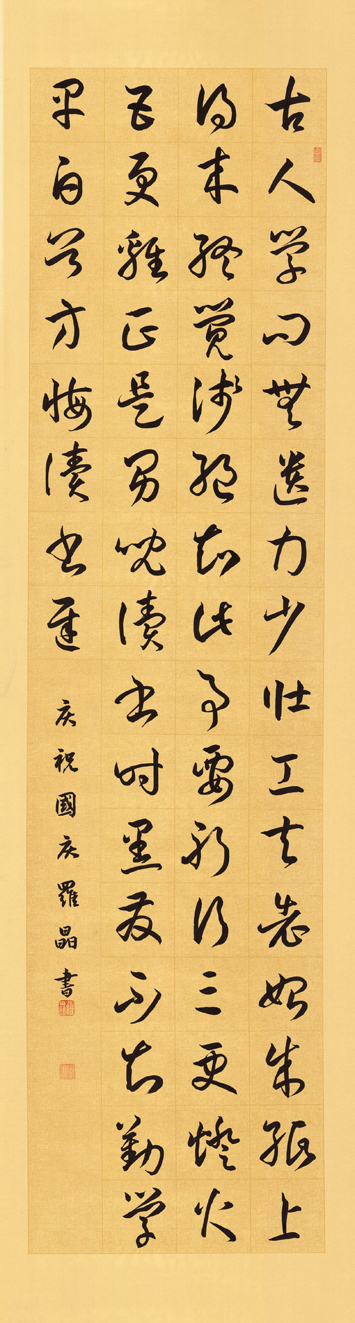 古人学问無遺力少壮工夫老始成纸上
得来终觉浅绝知此事要躬行三更燈火
五更雞正是男児讀书时黑发不知勤学
早白首方悔讀书遲
庆祝國庆羅晶書